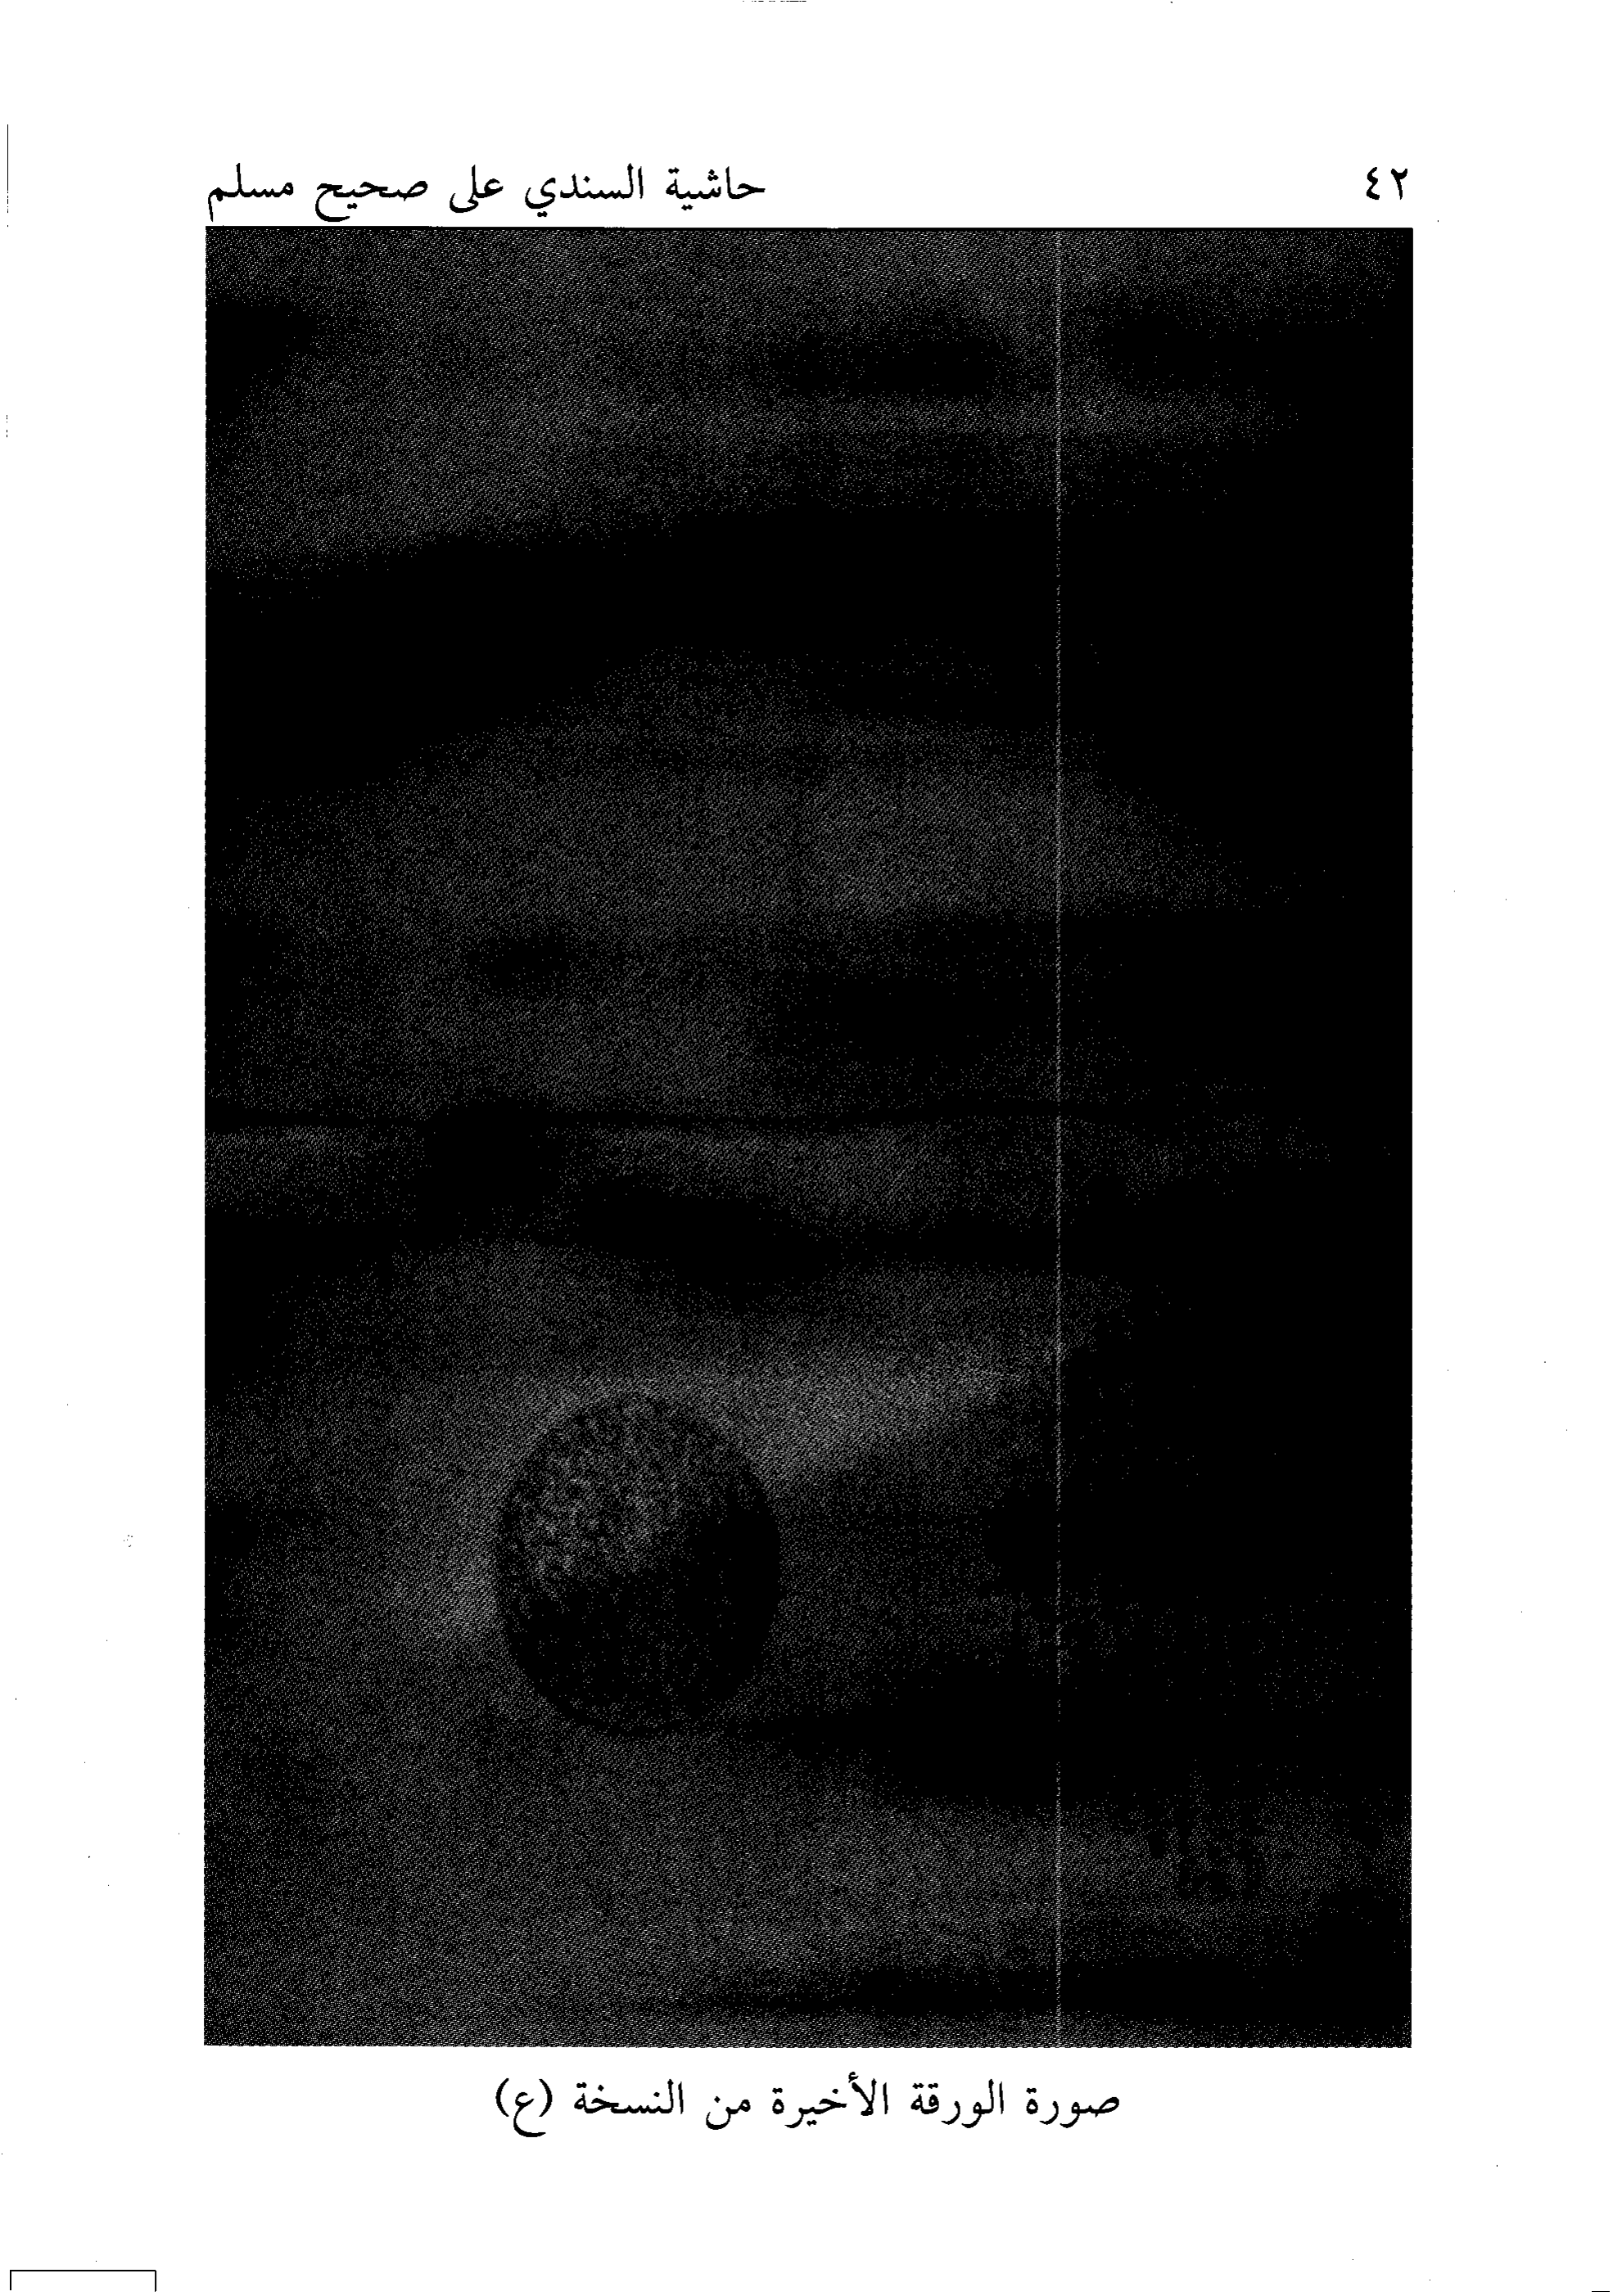 ٤٢
حاشية السندي على صحيح مسلم
صورة الورقة الأخيرة من النسخة (ع)